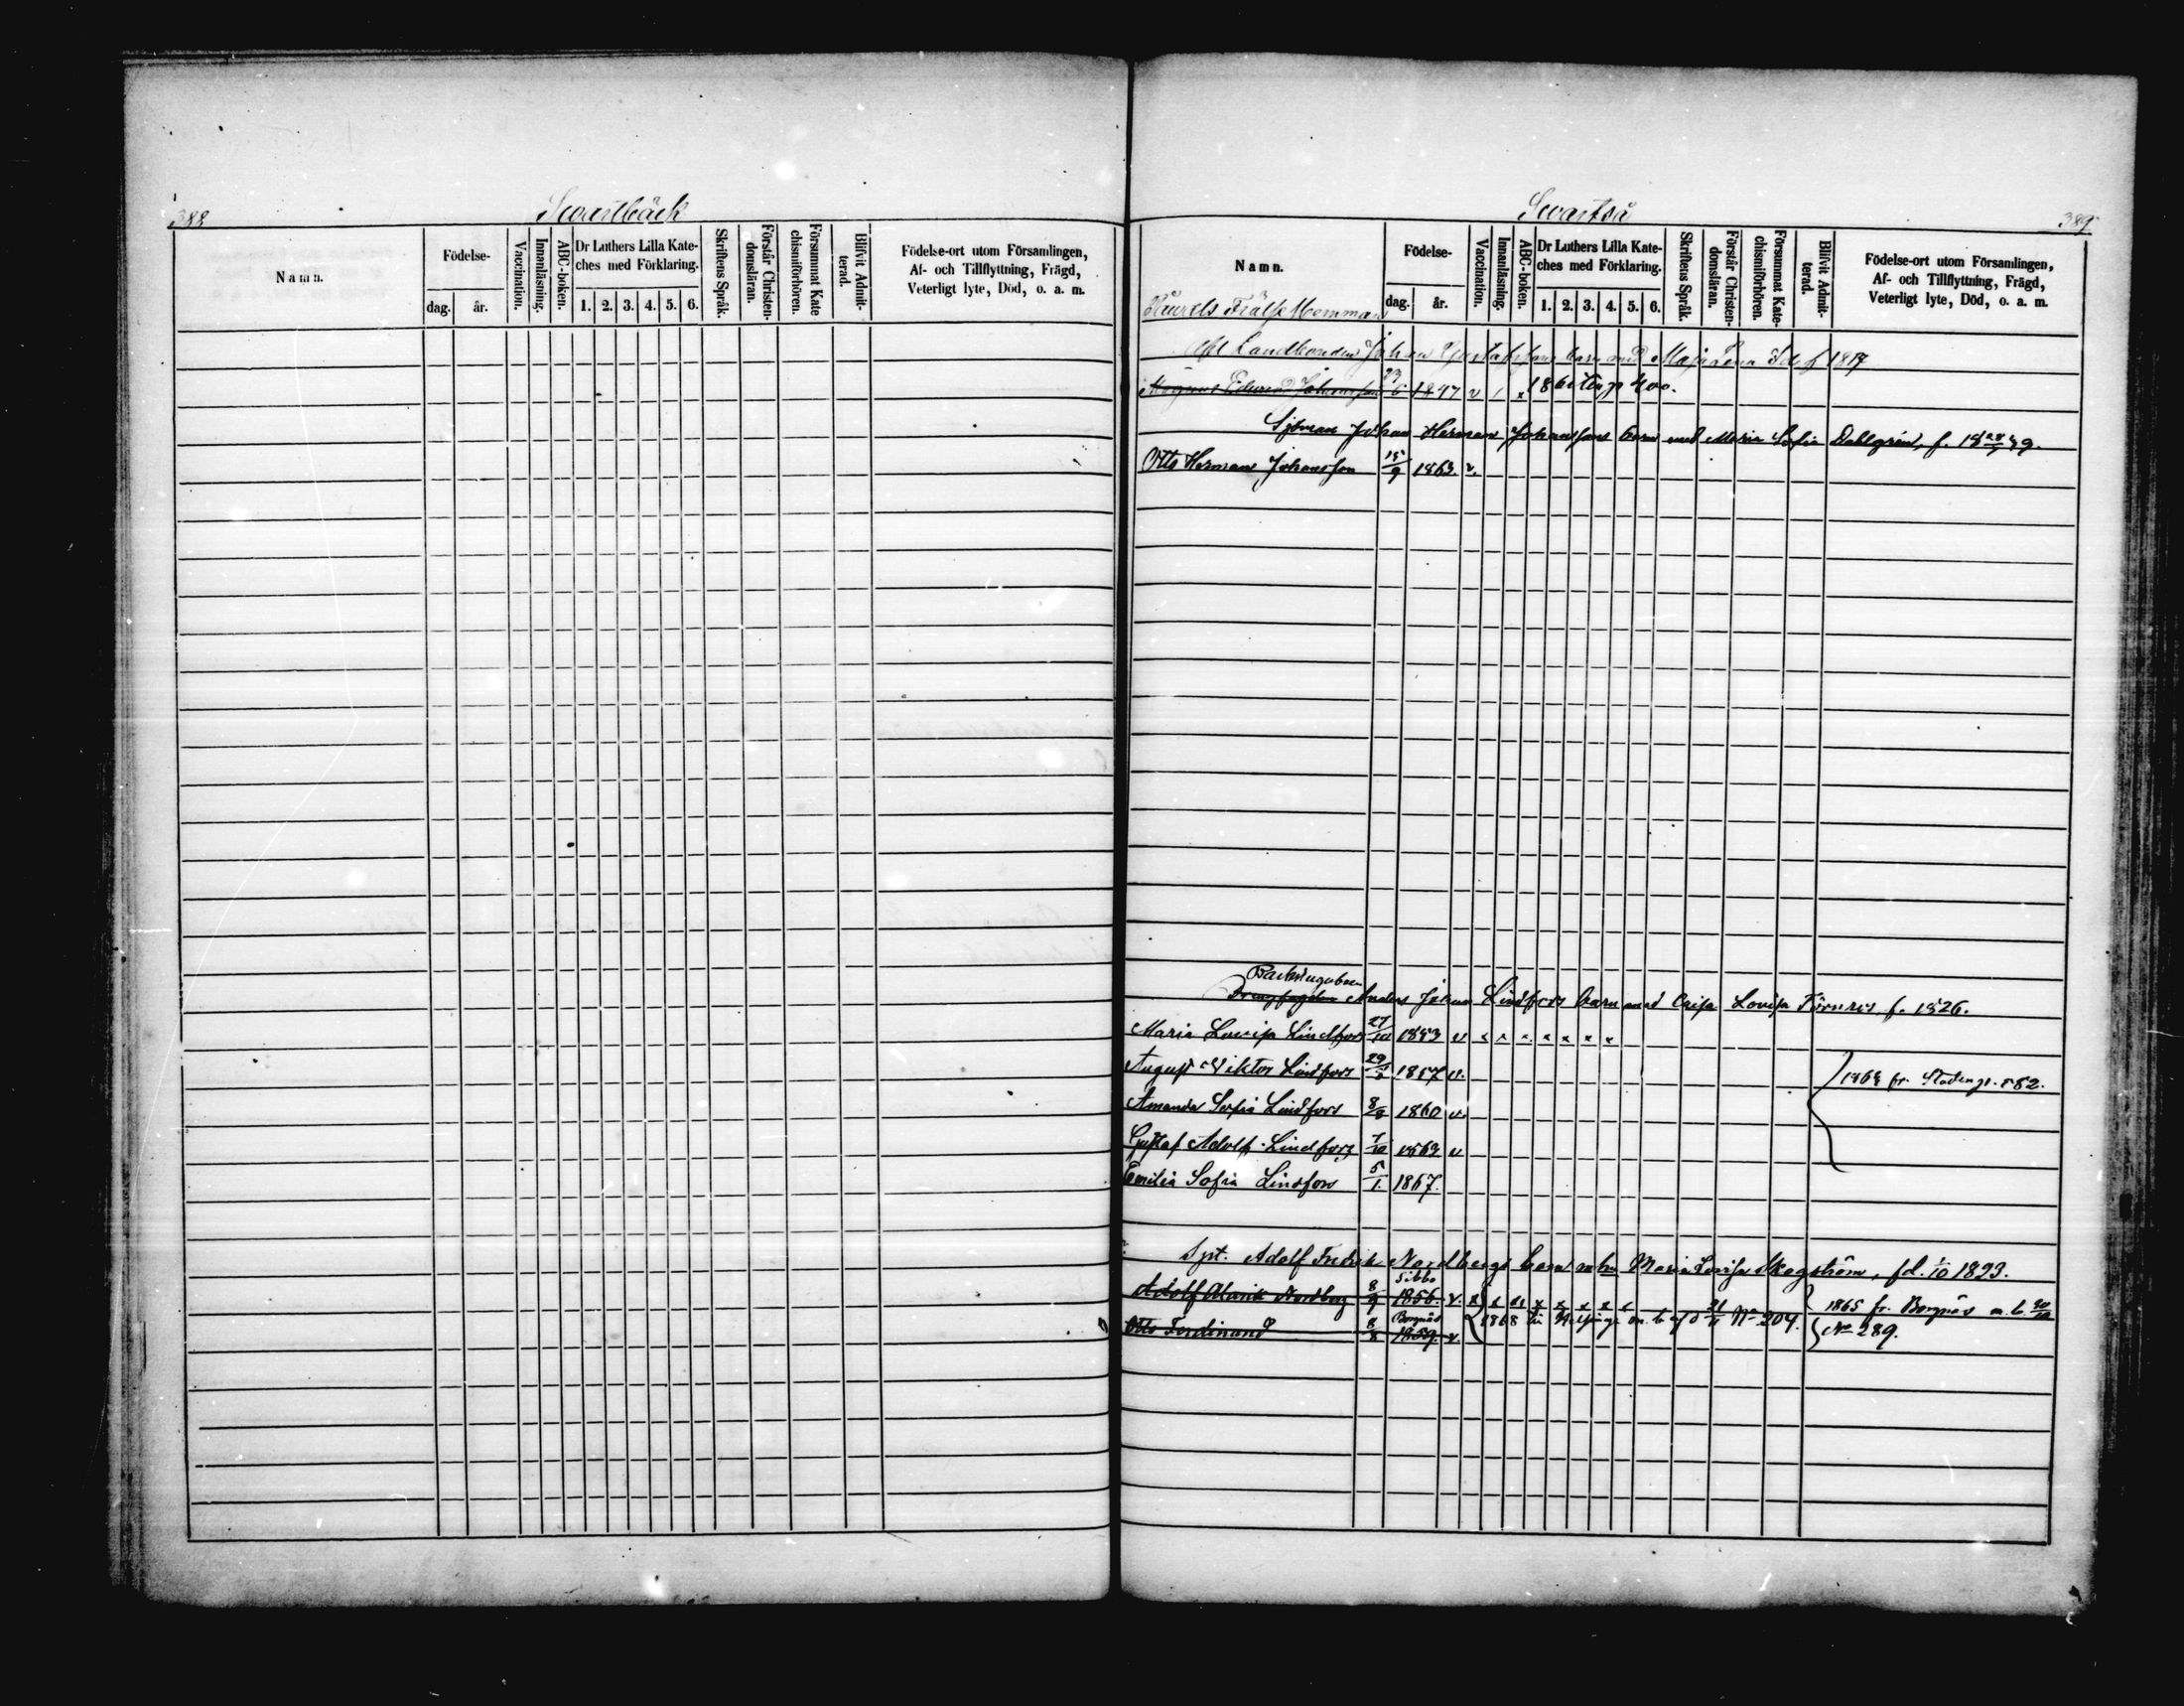 388
Svartbäck
Namn.
Födelse-
dag.
år.
Vaccination.
Innanläsning.
ABC-boken.
Dr Luthers Lilla Kate-
ches med Förklaring.
1. 2. 3. 4. 5. 6.
Skriftens Språk.
Förstår Christen-
domsläran.
Försummat Kate
chismiförhören.
Blifvit Admit-
terad.
Födelse-ort utom Församlingen,
Af- och Tillflyttning, Frägd,
Veterligt lyte, Död, o. a. m.
Svartså
389
Namn.
Födelse-
dag.
år.
Vaccination.
Innanläsning.
ABC-boken.
Dr Luthers Lilla Kate-
ches med Förklaring.
1. 2. 3. 4. 5. 6.
Skriftens Språk.
Förstår Christen-
domsläran.
Försummat Kate-
chismiförhören.
Blifvit Admit-
terad.
Födelse-ort utom Församlingen,
Af- och Tillflyttning, Frägd,
Veterligt lyte, Död, o. a. m.
Frälse Hemman
Landbonden Johan Gustafssons barn med Maja Lena f 1817
Magnus Edvard Johansson 23/6 1847 v / x 400.
Sjöman Johan Herman Johanssons barn med Maria Sofia Dahlgrén, f. 18 39.
Otto Herman Johansson 15/9 1863. v.
Anders Johan Lindfors barn med Cajsa Lovisa Törnros f. 1826.
Maria Lovisa Lindfors 27/10 1853 v x x x x x x x
August Viktor Lindfors 29/5 1857 v.
fr. 582.
Amanda Sofia Lindfors 8/8 1860 v.
Gustaf Adolf Lindfors 7/10 1863 v
Emilia Sofia Lindfors 5/1 1867.
Spt. Adolf Fredrik Nordbergs barn m hu Maria Lovisa Skogström, fd. 1/10 1823.
Sibbo
Adolf Alarik Nordberg 8/9 1856. v. x x x x x x x x
1865 fr. Borgnäs m. b.
Borgnäs
Otto Ferdinand 8/8 1859. v.
1868 till Helsing. m. b. af d 21/11 No 204.
No 289.